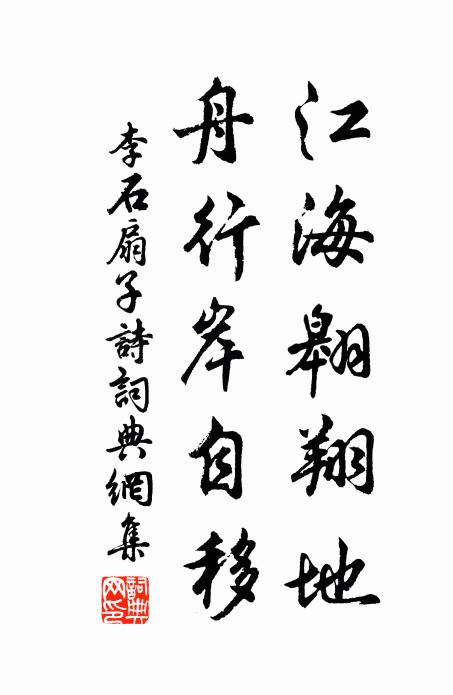 江海翱翔地
舟行岸自移
李石扇子詩詞典網集
詞典網印